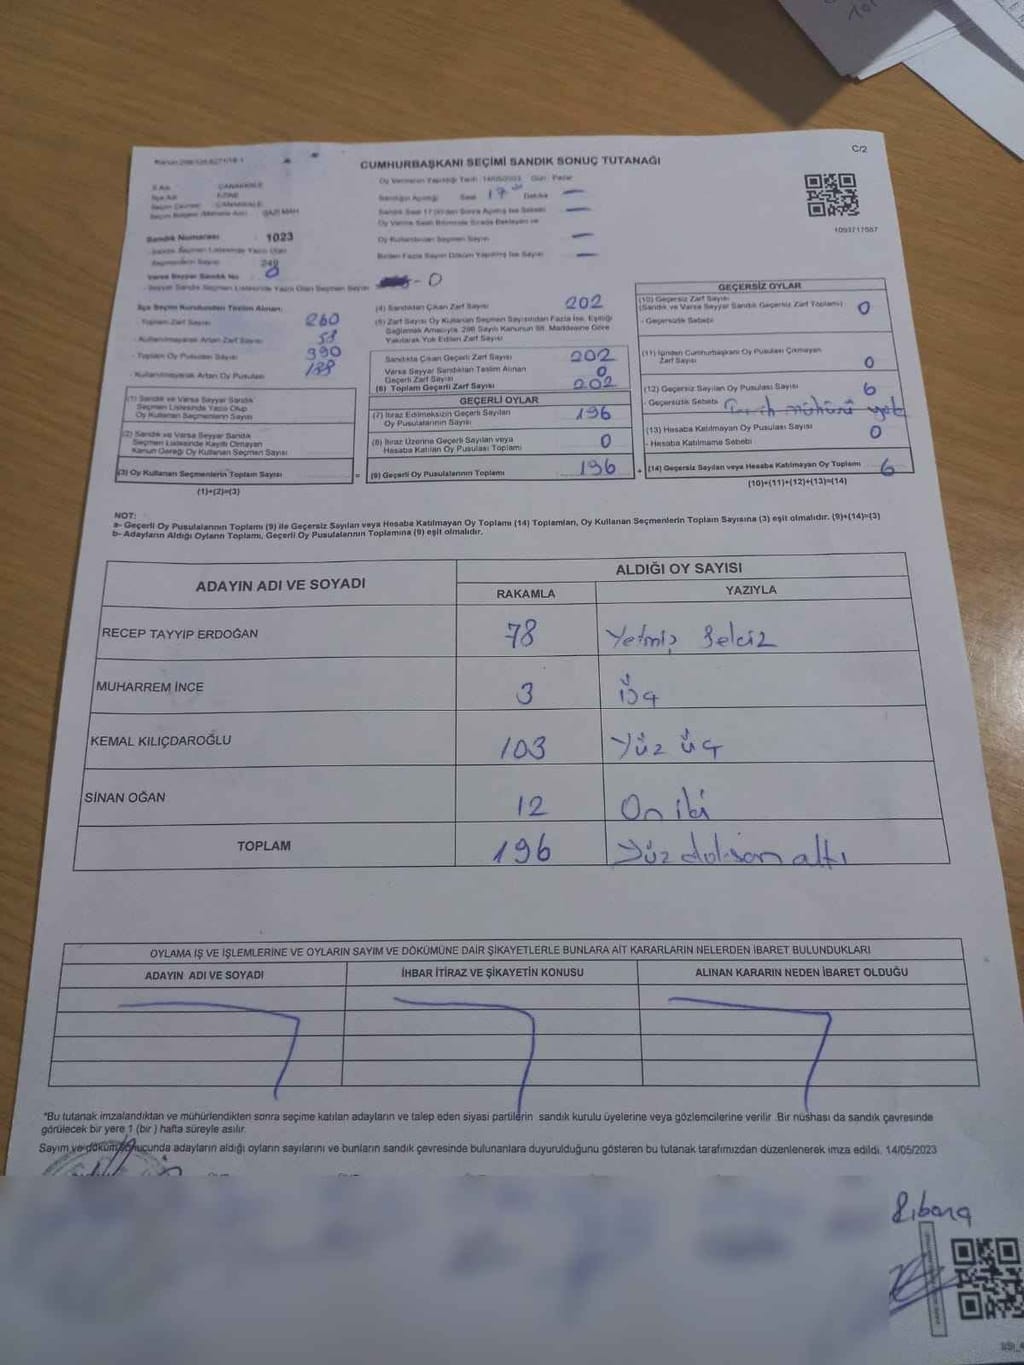 C/2
CUMHURBAŞKANI SEÇİMİ SANDIK SONUÇ TUTANAĞI
Oy Vermenin Yapıldığı Tarih: 14/05/2023 Gün: Pazar
Sandığın Açıldığı Saat 17 Dakika
1093717587
Sandık Numarası 1023
249
Varsa Seyyar Sandık No 0
- Seyyar Sandık Seçmen Listesinde Yazılı Olan Seçmen Sayısı 0
İlçe Seçim Kurulundan Teslim Alınan;
- Toplam Zarf Sayısı 260
- Kullanılmayarak Artan Zarf Sayısı 58
- Toplam Oy Pusulası Sayısı 390
- Kullanılmayarak Artan Oy Pusulası
(1) Sandık ve Varsa Seyyar Sandık
Seçmen Listesinde Yazılı Olup
Oy Kullanan Seçmenlerin Sayısı
(2) Sandık ve Varsa Seyyar Sandık
Seçmen Listesinde Kayıtlı Olmayan
Kanun Gereği Oy Kullanan Seçmen Sayısı
(3) Oy Kullanan Seçmenlerin Toplam Sayısı
(1)+(2)=(3)
(4) Sandıktan Çıkan Zarf Sayısı 202
(5) Zarf Sayısı Oy Kullanan Seçmen Sayısından Fazla İse, Eşitliği
Sağlamak Amacıyla, 298 Sayılı Kanunun 98. Maddesine Göre
Yakılarak Yok Edilen Zarf Sayısı
Sandıkta Çıkan Geçerli Zarf Sayısı 202
Varsa Seyyar Sandıktan Teslim Alınan
Geçerli Zarf Sayısı 0
(6) Toplam Geçerli Zarf Sayısı 202
GEÇERLİ OYLAR
(7) İtiraz Edilmeksizin Geçerli Sayılan
Oy Pusulalarının Sayısı 196
(8) İtiraz Üzerine Geçerli Sayılan veya
Hesaba Katılan Oy Pusulası Toplamı 0
= (9) Geçerli Oy Pusulalarının Toplamı 196
GEÇERSİZ OYLAR
(10) Geçersiz Zarf Sayısı
(Sandık ve Varsa Seyyar Sandık Geçersiz Zarf Toplamı) 0
- Geçersizlik Sebebi
(11) İçinden Cumhurbaşkanı Oy Pusulası Çıkmayan
Zarf Sayısı 0
(12) Geçersiz Sayılan Oy Pusulası Sayısı 6
- Geçersizlik Sebebi Tercih mühürü yok
(13) Hesaba Katılmayan Oy Pusulası Sayısı 0
- Hesaba Katılmama Sebebi
+ (14) Geçersiz Sayılan veya Hesaba Katılmayan Oy Toplamı 6
(10)+(11)+(12)+(13)=(14)
NOT:
a- Geçerli Oy Pusulalarının Toplamı (9) ile Geçersiz Sayılan veya Hesaba Katılmayan Oy Toplamı (14) Toplamları, Oy Kullanan Seçmenlerin Toplam Sayısına (3) eşit olmalıdır. (9)+(14)=(3)
b- Adayların Aldığı Oyların Toplamı, Geçerli Oy Pusulalarının Toplamına (9) eşit olmalıdır.
ADAYIN ADI VE SOYADI
ALDIĞI OY SAYISI
RAKAMLA YAZIYLA
RECEP TAYYİP ERDOĞAN 78 Yetmiş Sekiz
MUHARREM İNCE 3 Üç
KEMAL KILIÇDAROĞLU 103 Yüz üç
SİNAN OĞAN 12 On iki
TOPLAM 196 Yüz doksan altı
OYLAMA İŞ VE İŞLEMLERİNE VE OYLARIN SAYIM VE DÖKÜMÜNE DAİR ŞİKAYETLERLE BUNLARA AİT KARARLARIN NELERDEN İBARET BULUNDUKLARI
ADAYIN ADI VE SOYADI İHBAR İTİRAZ VE ŞİKAYETİN KONUSU ALINAN KARARIN NEDEN İBARET OLDUĞU
*Bu tutanak imzalandıktan ve mühürlendikten sonra seçime katılan adayların ve talep eden siyasi partilerin sandık kurulu üyelerine veya gözlemcilerine verilir .Bir nüshası da sandık çevresinde
görülecek bir yere 1 (bir ) hafta süreyle asılır.
Sayım ve döküm sonucunda adayların aldığı oyların sayılarını ve bunların sandık çevresinde bulunanlara duyurulduğunu gösteren bu tutanak tarafımızdan düzenlenerek imza edildi. 14/05/2023